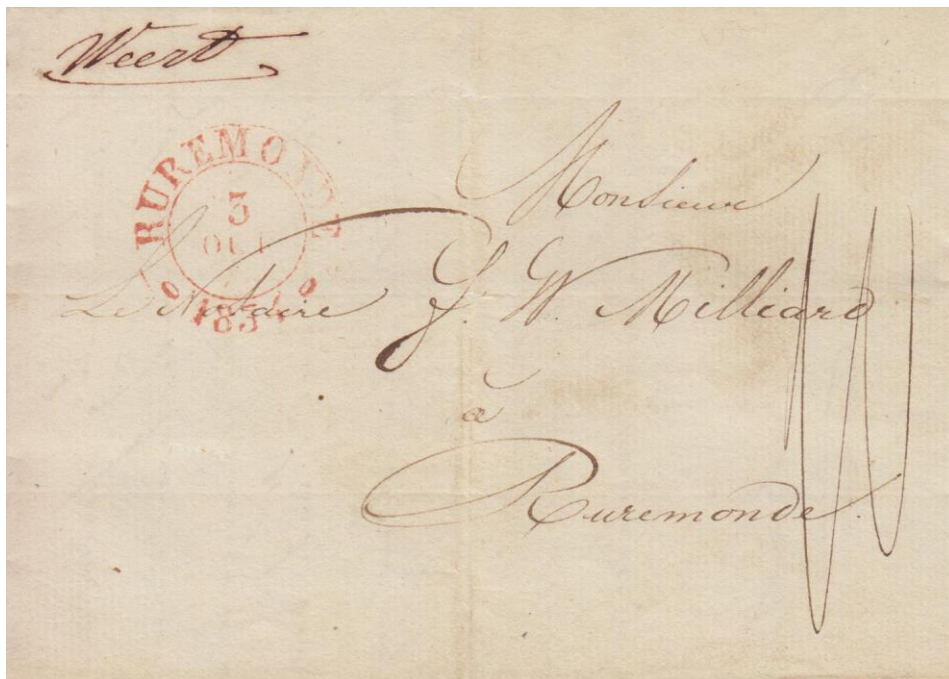 Weert
RUREMONDE
3
OCT
Monsieur
Le Notaire J. W. Milliard
à
Ruremonde.